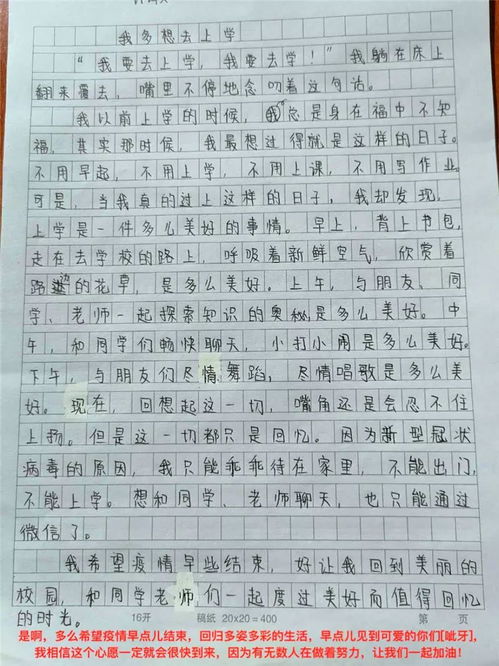 我多想去上学
“我要去上学，我要去学！”我躺在床上
翻来覆去，嘴里不停地念叨着这句话。
我以前上学的时候，我总是身在福中不知
福，其实那时候，我最想过得就是这样的日子。
不用早起，不用上学，不用上课，不用写作业。
可是，当我真的过上这样的日子，我却发现，
上学是一件多么美好的事情。早上，背上书包，
走在去学校的路上，呼吸着新鲜空气，欣赏着
路边的花草，是多么美好。上午，与朋友、同
学、老师一起探索知识的奥秘是多么美好。中
午，和同学们畅快聊天，小打小闹是多么美好。
下午，与朋友们尽情舞蹈，尽情唱歌是多么美
好。现在，回想起这一切，嘴角还是会忍不住
上扬。但是这一切都只是回忆。因为新型冠状
病毒的原因，我只能乖乖待在家里，不能出门，
不能上学。想和同学、老师聊天，也只能通过
微信了。
我希望疫情早些结束，好让我回到美丽的
校园，和同学老师们一起度过美好而值得回忆
的时光。
16开 稿纸 20×20=400 第 页
是啊，多么希望疫情早点儿结束，回归多姿多彩的生活，早点儿见到可爱的你们[呲牙]。
我相信这个心愿一定就会很快到来，因为有无数人在做着努力，让我们一起加油！